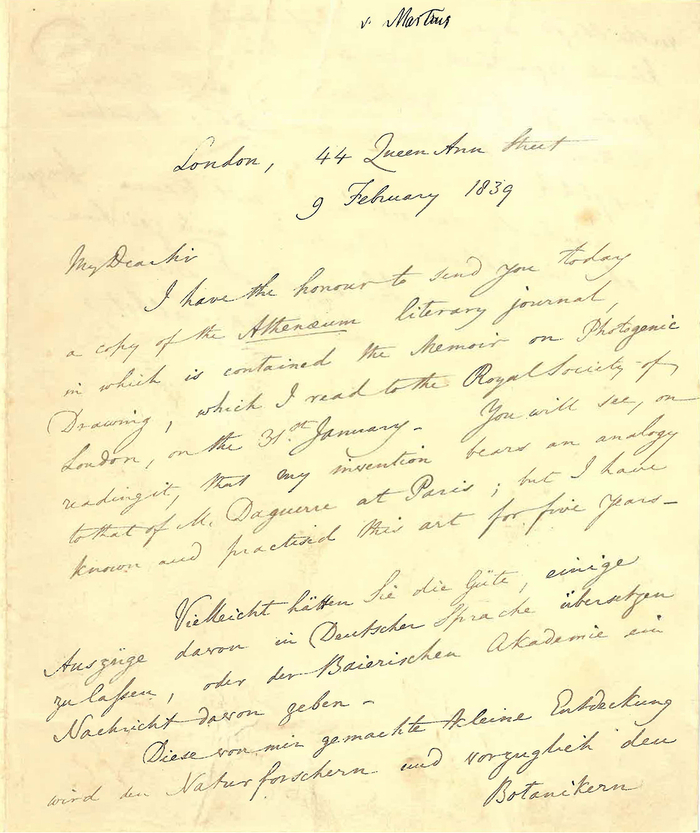 v. Martius
London, 44 Queen Ann Street
9 February 1839
My Dear Sir
I have the honour to send you today
a copy of the Athenæum literary journal,
in which is contained the Memoir on Photogenic
Drawing, which I read to the Royal Society of
London, on the 31st. January. You will see, on
reading it, that my invention bears an analogy
to that of M. Daguerre at Paris; but I have
known and practised this art for five years—
Vielleicht hätten Sie die Güte, einige
Auszüge davon in Deutscher Sprache übersetzen
zu laſsen, oder der Baierischen Akademie ein
Nachricht davon geben.
Diese von mir gemachte kleine Entdeckung
wird den Naturforschern und vorzuglich den
Botanikern